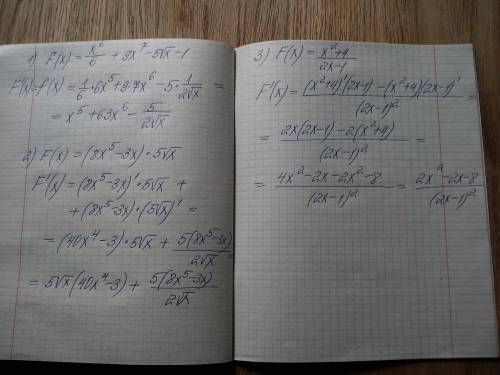 1) F(x) = x⁶/6 + 9x⁷ - 5√x - 1
F'(x) = f(x) = 1/6 · 6x⁵ + 9·7x⁶ - 5 · 1/(2√x) =
= x⁵ + 63x⁶ - 5/(2√x)
2) F(x) = (8x⁵-3x) · 5√x
F'(x) = (8x⁵-3x)' · 5√x +
+ (8x⁵-3x) · (5√x)' =
= (40x⁴-3) · 5√x + 5(8x⁵-3x)/(2√x) =
= 5√x(40x⁴-3) + 5(8x⁵-3x)/(2√x)
3) F(x) = (x²+4)/(2x-1)
F'(x) = ((x²+4)'(2x-1) - (x²+4)(2x-1)')/(2x-1)² =
= (2x(2x-1) - 2(x²+4))/(2x-1)² =
= (4x²-2x-2x²-8)/(2x-1)² = (2x²-2x-8)/(2x-1)²